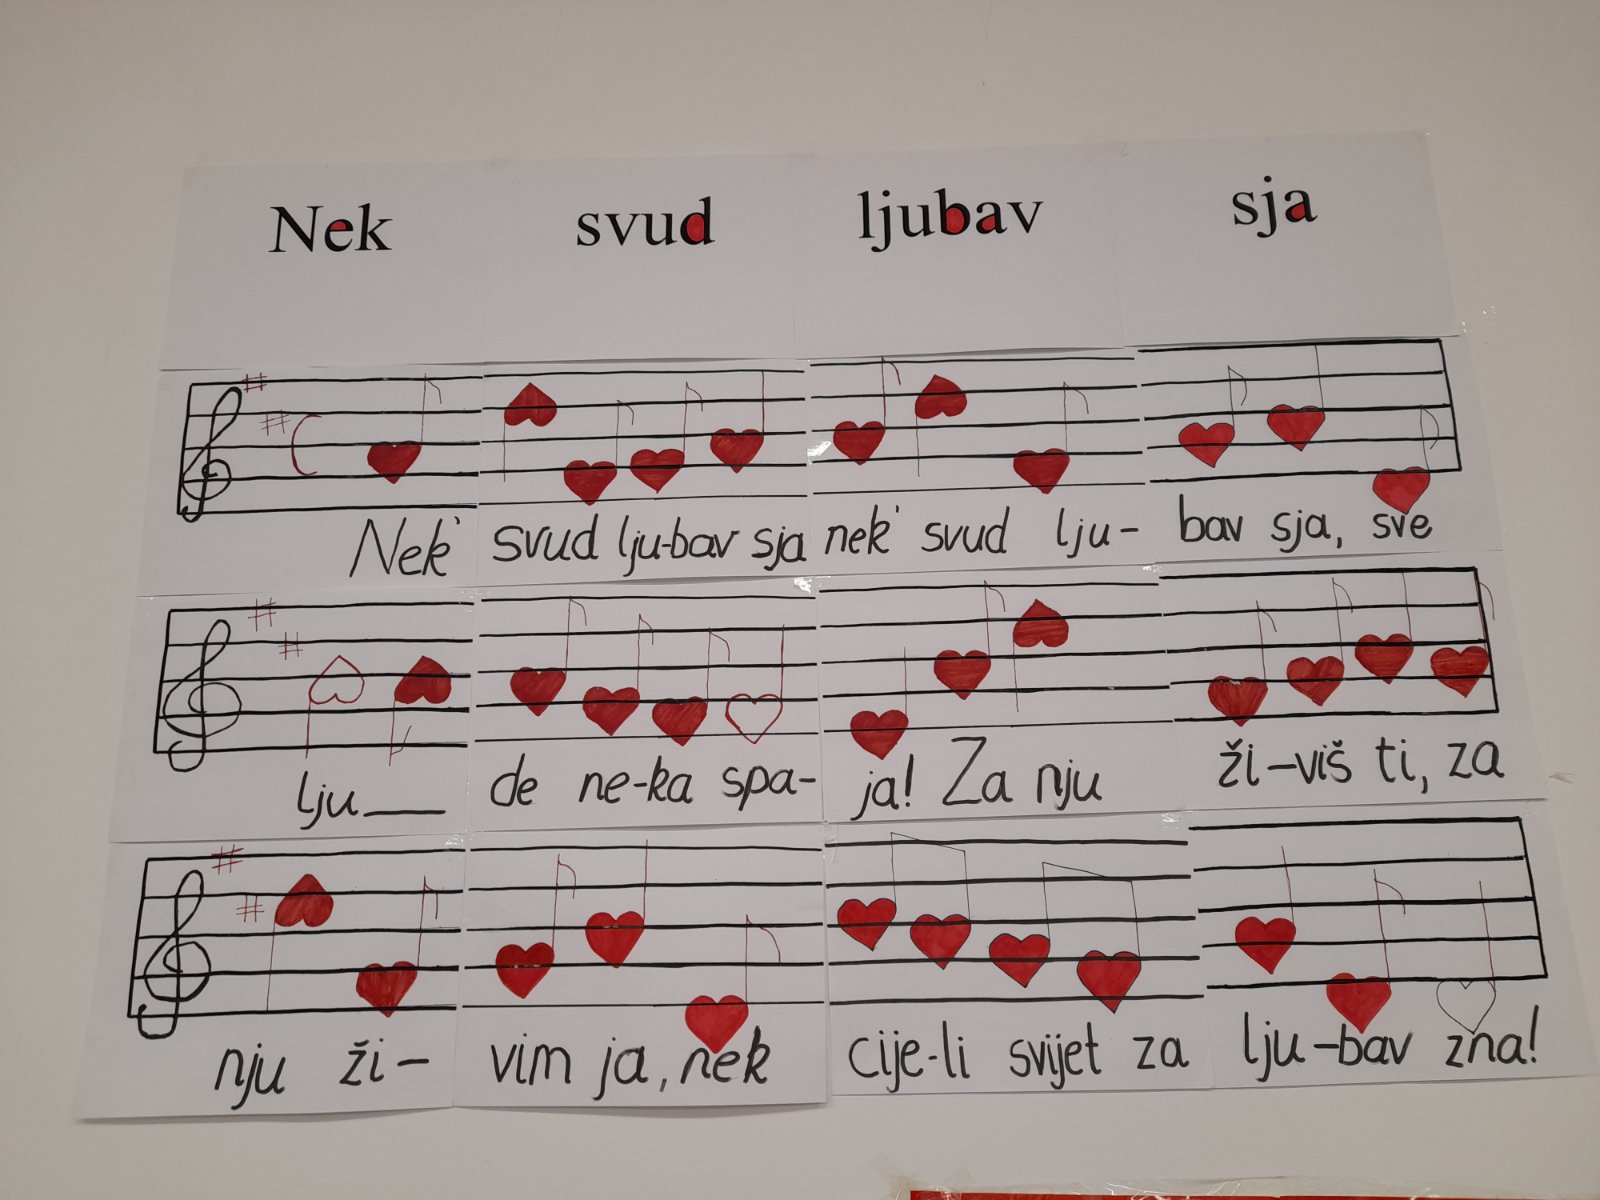 Nek svud ljubav sja
Nek' svud lju-bav sja nek' svud lju- bav sja, sve
lju___ de ne-ka spa- ja! Za nju ži-viš ti, za
nju ži- vim ja, nek cije-li svijet za lju-bav zna!